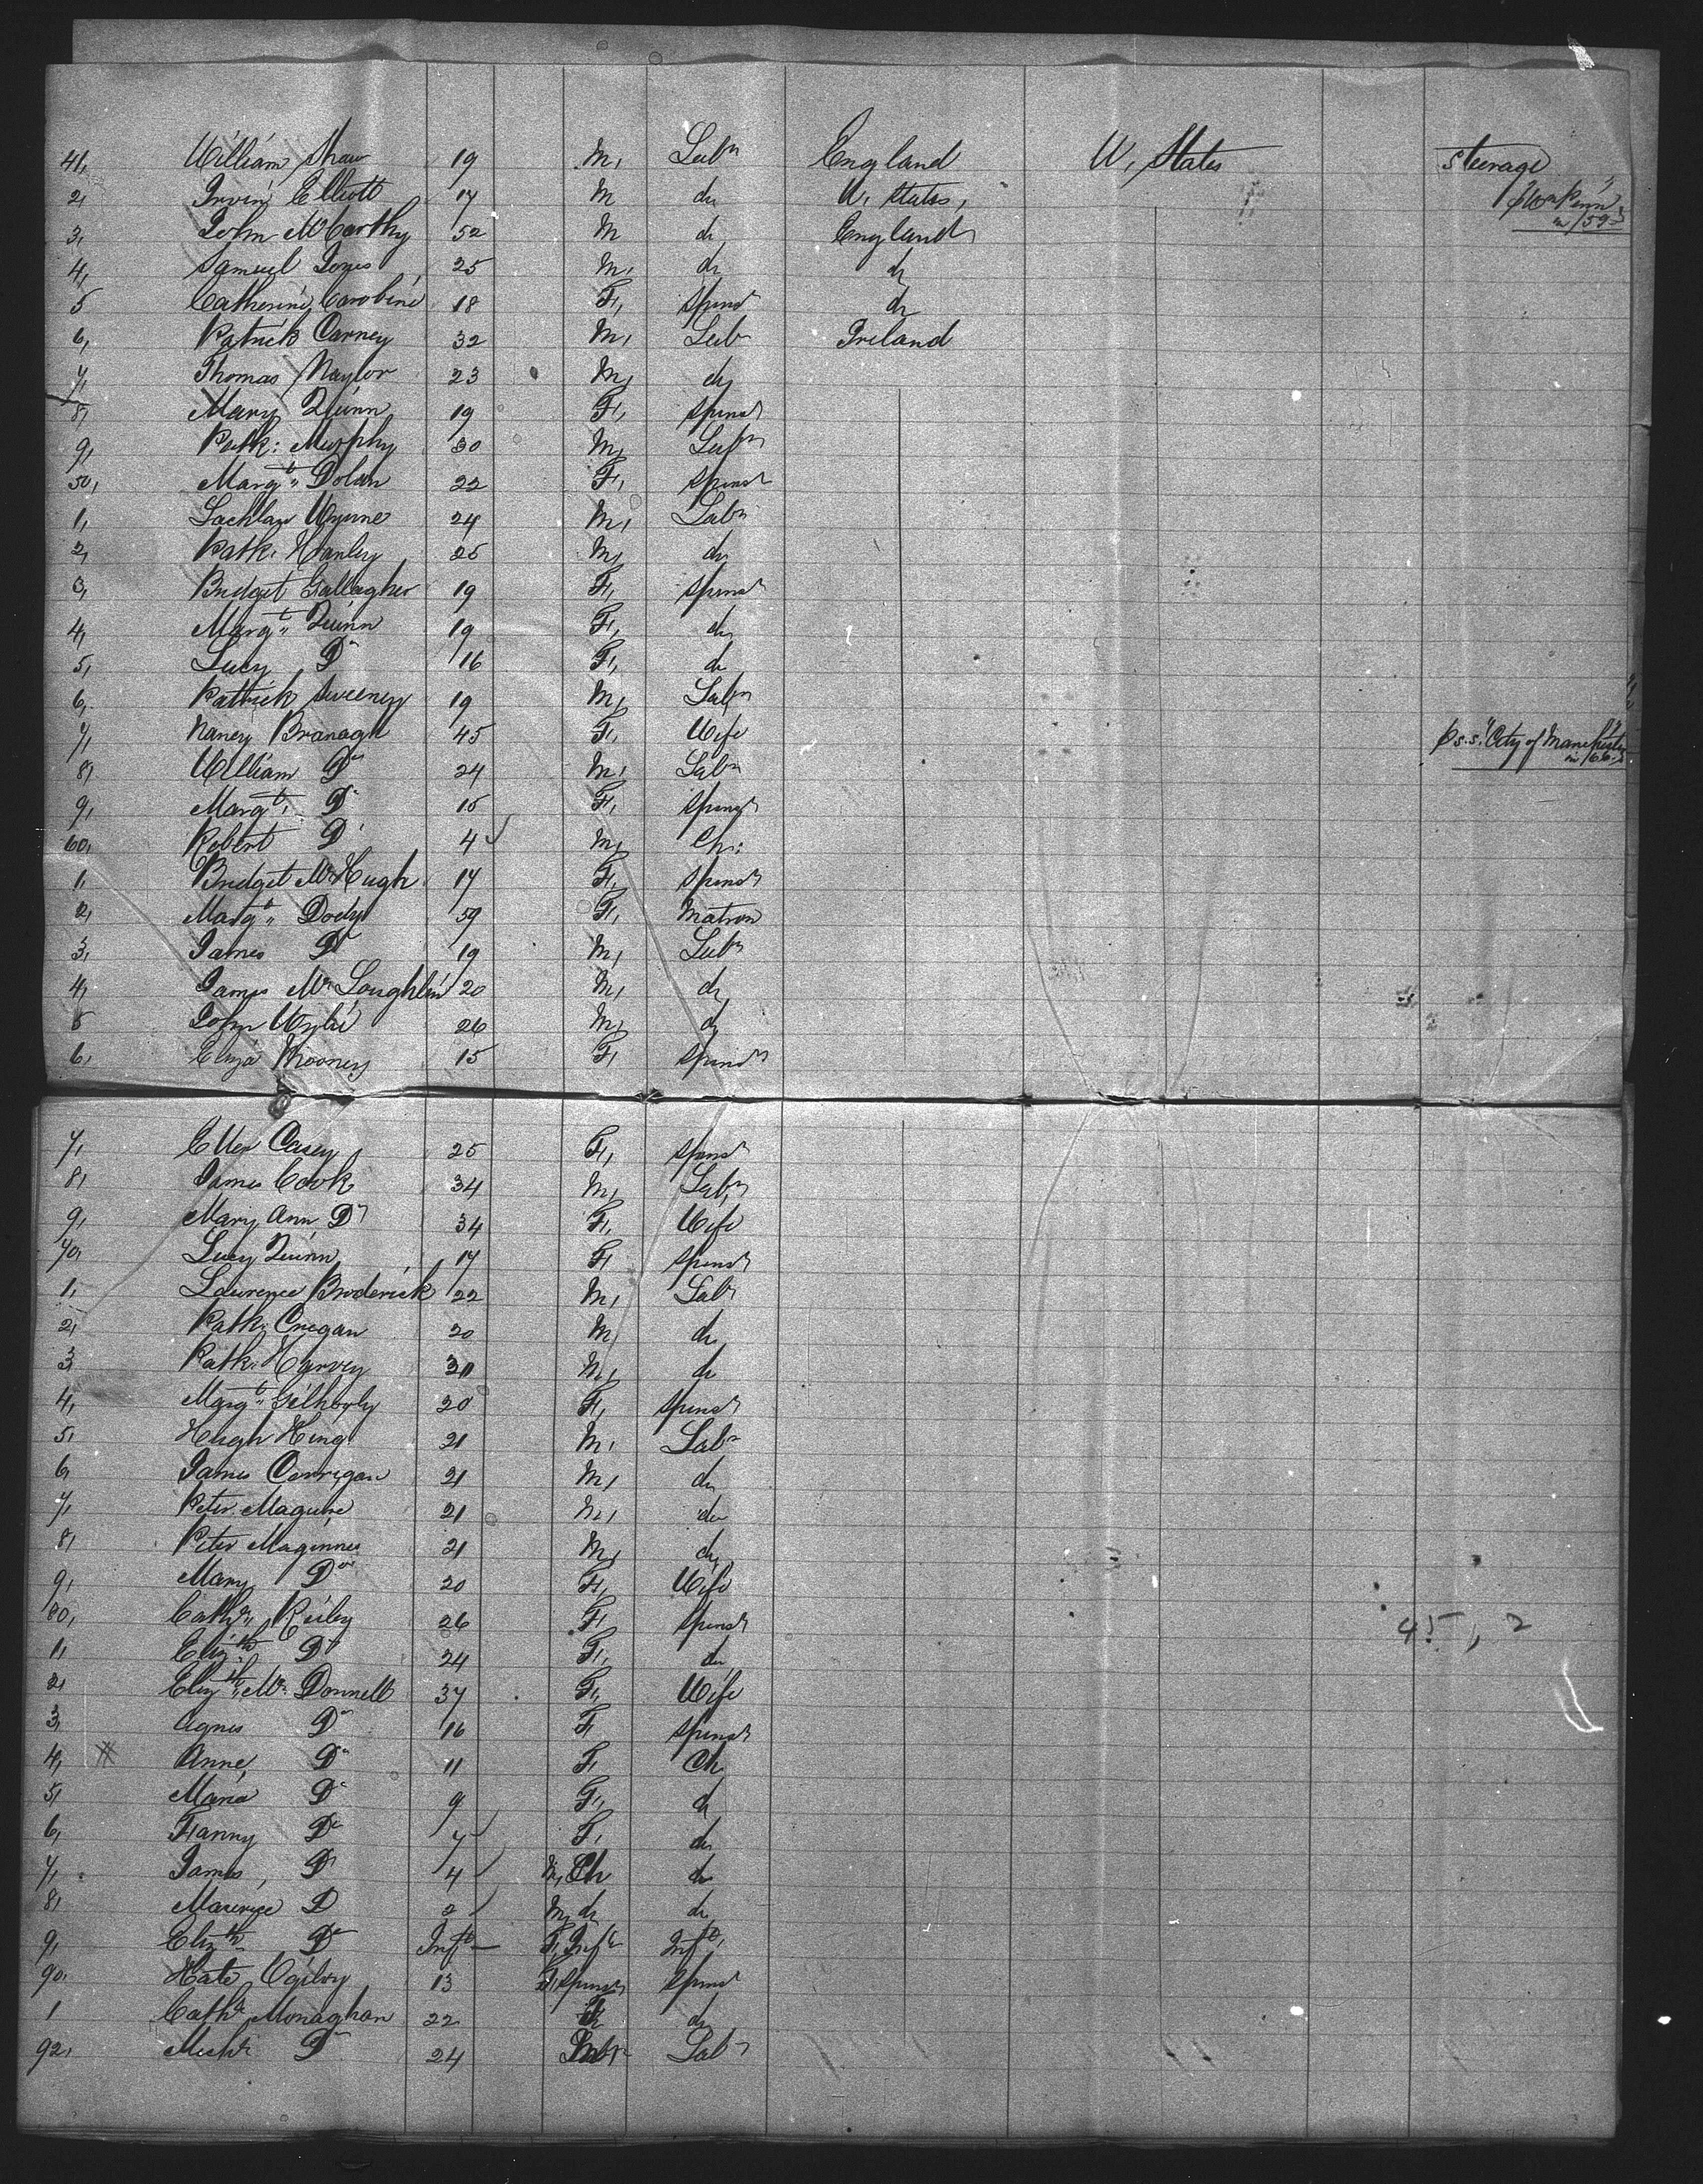 41, William Shaw 19 M, Labr England U, States Steerage
2, Irvin Elliott 17 M do U, States,
3, John McCarthy 52 M do England in /59
4, Samuel Jones 25 M, do do
5 Catherine 18 F, Spinsr do
6, Patrick Carney 32 M, Labr Ireland
7, Thomas Naylor 23 M, do
8, Mary Quinn 19 F, Spinsr
9, Patk: Murphy 30 M, Labr
50, Margt Dolan 22 F, Spinsr
1, Lachlan 24 M, Labr
2, Patk: Hanley 25 M, do
3, Bridget Gallagher 19 F, Spinsr
4, Margt Quinn 19 F, do
5, Lucy Do 16 F, do
6, Patrick Sweeney 19 M, Labr
7, Nancy Branagh 45 F, Wife p s.s. "City of Manchester" in /66
8, William Do 24 M, Labr
9, Margt, Do 15 F, Spinsr
60, Robert Do 4 M, Ch:
1, Bridget McHugh 17 F, Spinsr
2, Margt Dody 59 F, Matron
3, James Do 19 M, Labr
4, James McLoughlin 20 M, do
5 John Wylie 26 M, do
6, Eliza Mooney 15 F, Spinsr
7, Ellen Casey 25 F, Spinsr
8, James Cook 34 M, Labr
9, Mary Ann Do 34 F, Wife
70, Lucy Quinn 17 F, Spinsr
1, Lawrence Broderick 22 M, Labr
2, Patk: Cregan 20 M, do
3, Patk: Harvey M, do
4, Margt Gilhooly 20 F, Spinsr
5, Hugh King 21 M, Labr
6, James Corrigan 21 M, do
7, Peter Maguire 21 M, do
8, Peter Maginnes 21 M, do
9, Mary Do 20 F, Wife
80, Cathe Reiley 26 F, Spinsr 45, 2
1, Elizth Do 24 F, do
2, Elizth McDonnell 37 F, Wife
3, Agnes Do 16 F, Spinsr
4, Anne, Do 11 F, Ch
5, Maria Do 9 F, do
6, Fanny Do 7 F, do
7, James, Do 4 M, Ch do
8, Maurice Do 2 M, do do
9, Elizth Do Inft F, Inft Inft,
90, Kate Ogilvy 13 F, Spinsr Spinsr
1 Cathe Monaghan 22 do
92, Michl Do 24 Labr